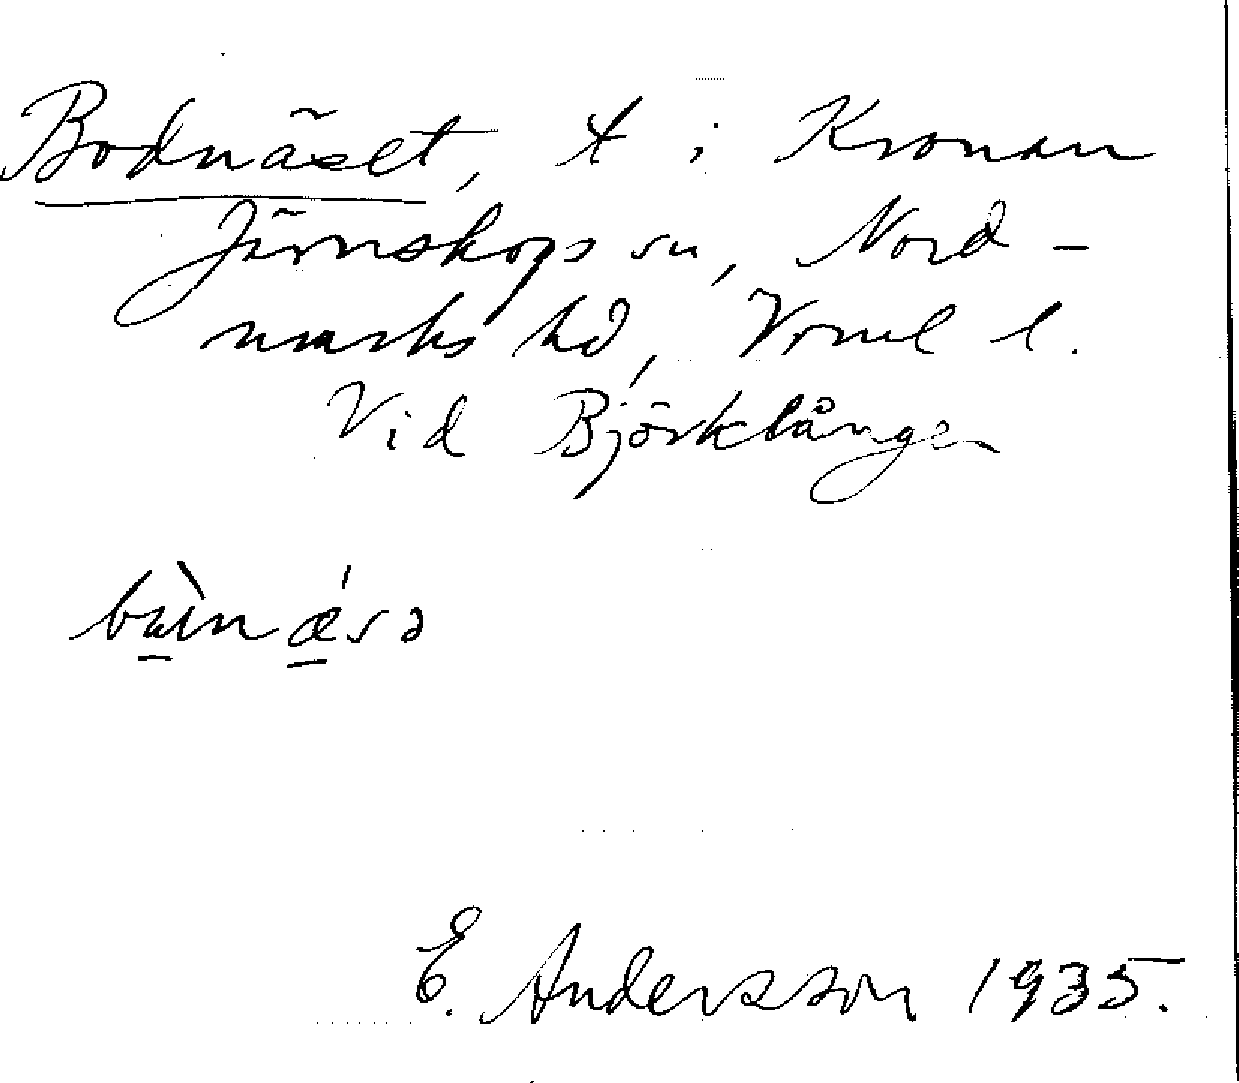 Bodnäset, t i Kronan
Järnskogs sn, Nord-
marks hd, Vrml l.
Vid Björklången
bùnǽsə
E. Andersson 1935.